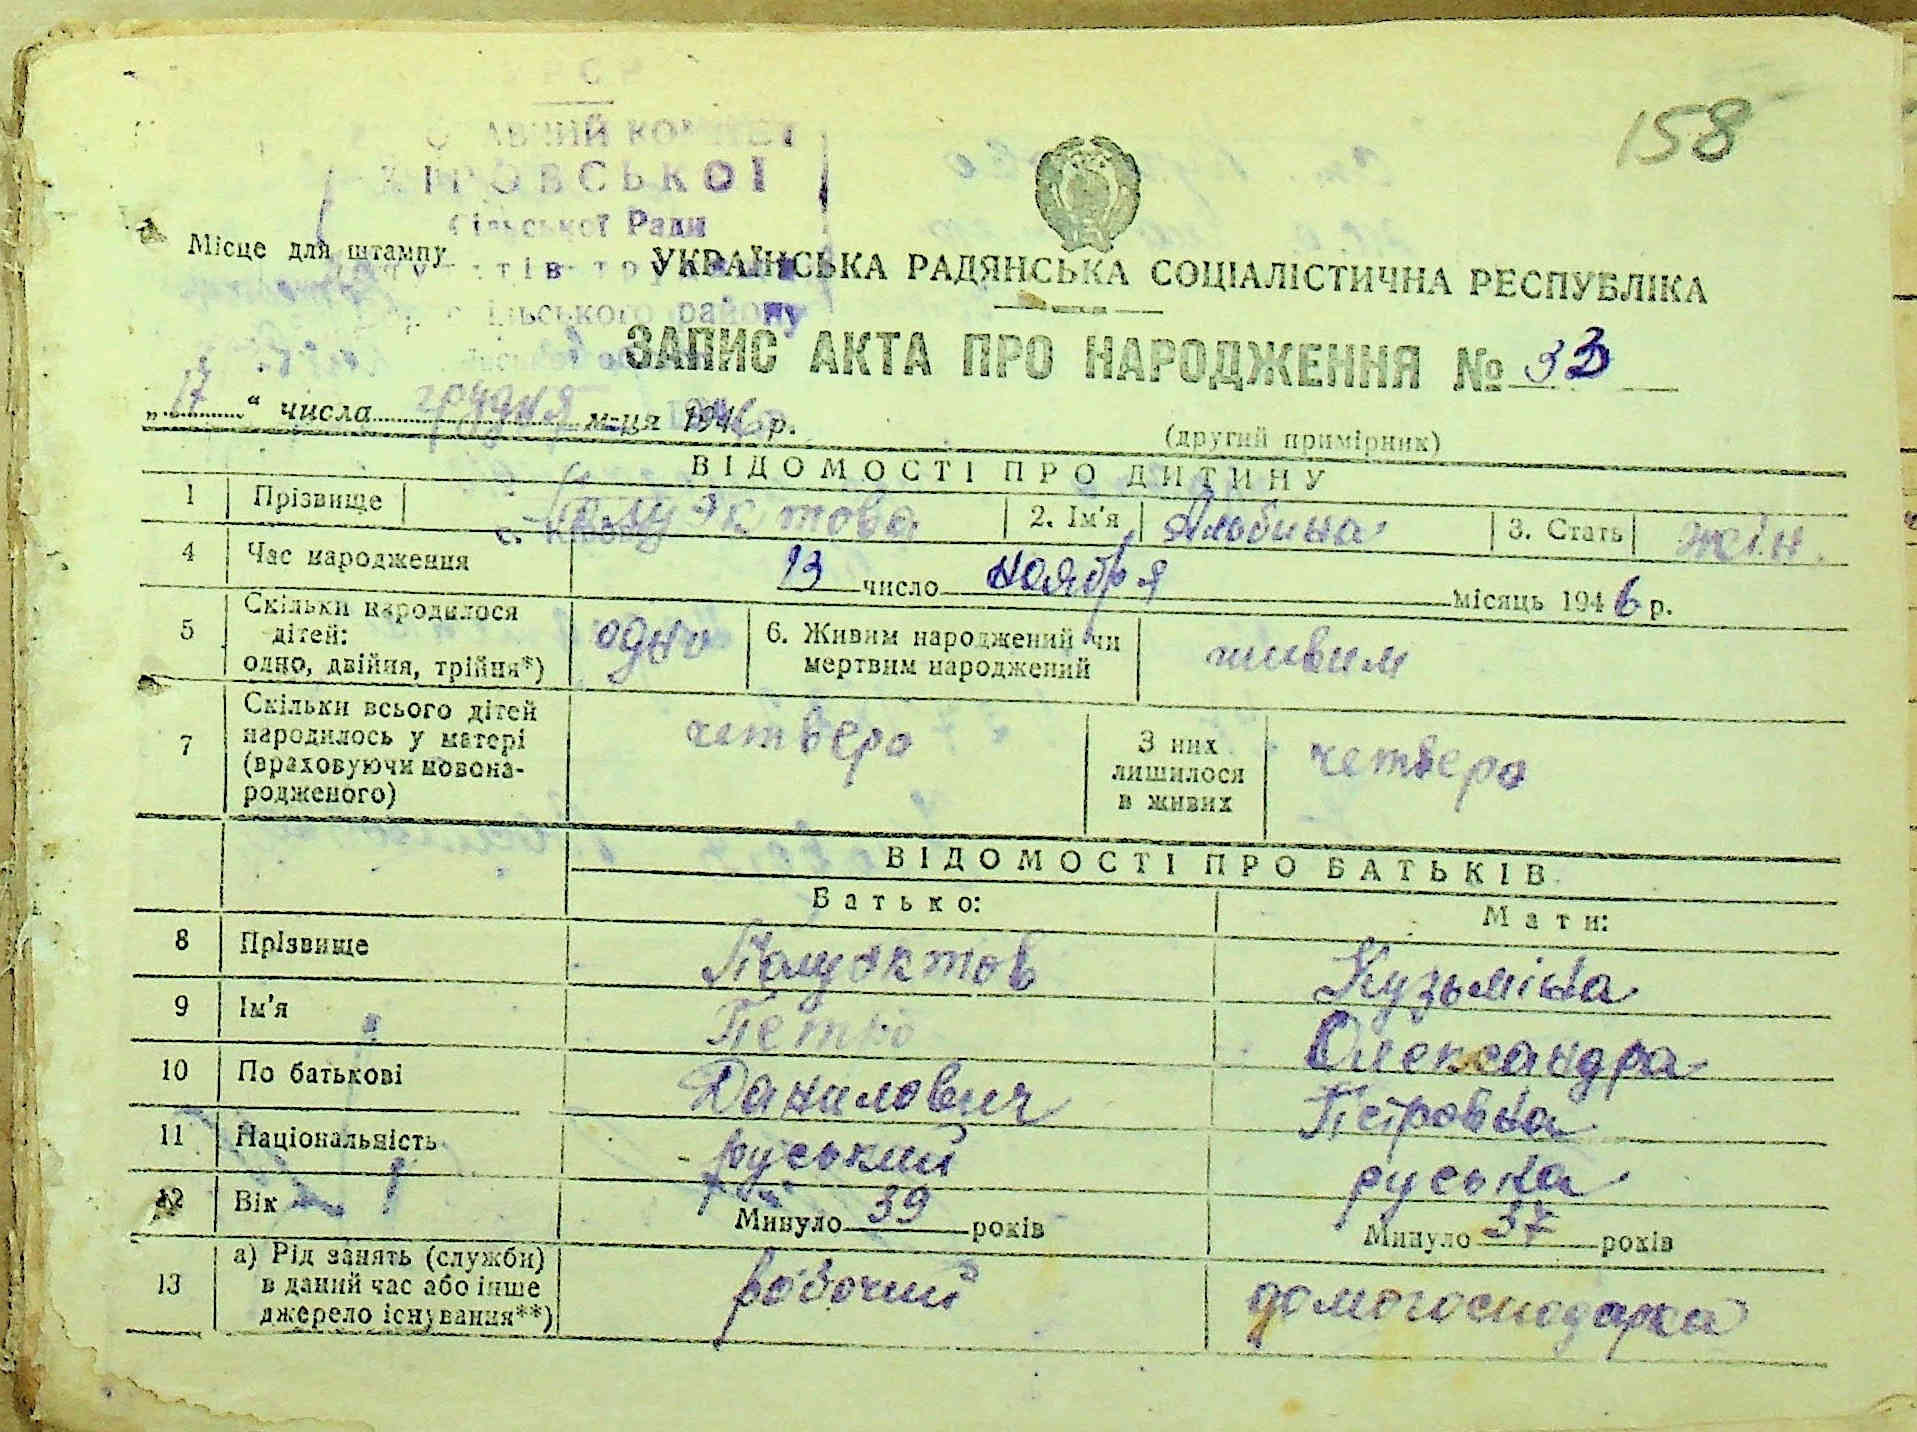 158
КОМІТЕТ
КІРОВСЬКОЇ
Сільської Ради
Місце для штампу
УКРАЇНСЬКА РАДЯНСЬКА СОЦІАЛІСТИЧНА РЕСПУБЛІКА
району
ЗАПИС АКТА ПРО НАРОДЖЕННЯ №
„17“ числа грудня м-ця 1946 р.
(другий примірник)
ВІДОМОСТІ ПРО ДИТИНУ
1 Прізвище Полуэктова 2. Ім'я Альбина 3. Стать жін.
4 Час народження 13 число ноября місяць 1946 р.
5 Скільки народилося дітей: одно, двійня, трійня*) одно 6. Живим народжений чи мертвим народжений живим
7 Скільки всього дітей народилось у матері (враховуючи новонародженого) четверо З них лишилося в живих четверо
ВІДОМОСТІ ПРО БАТЬКІВ
Батько: Мати:
8 Прізвище Полуэктов Кузьміна
9 Ім'я Петро Олександра
10 По батькові Данилович Петровна
11 Національність руський руська
12 Вік Минуло 39 років Минуло 37 років
13 а) Рід занять (служби) в даний час або інше джерело існування**) робочий домогосподарка